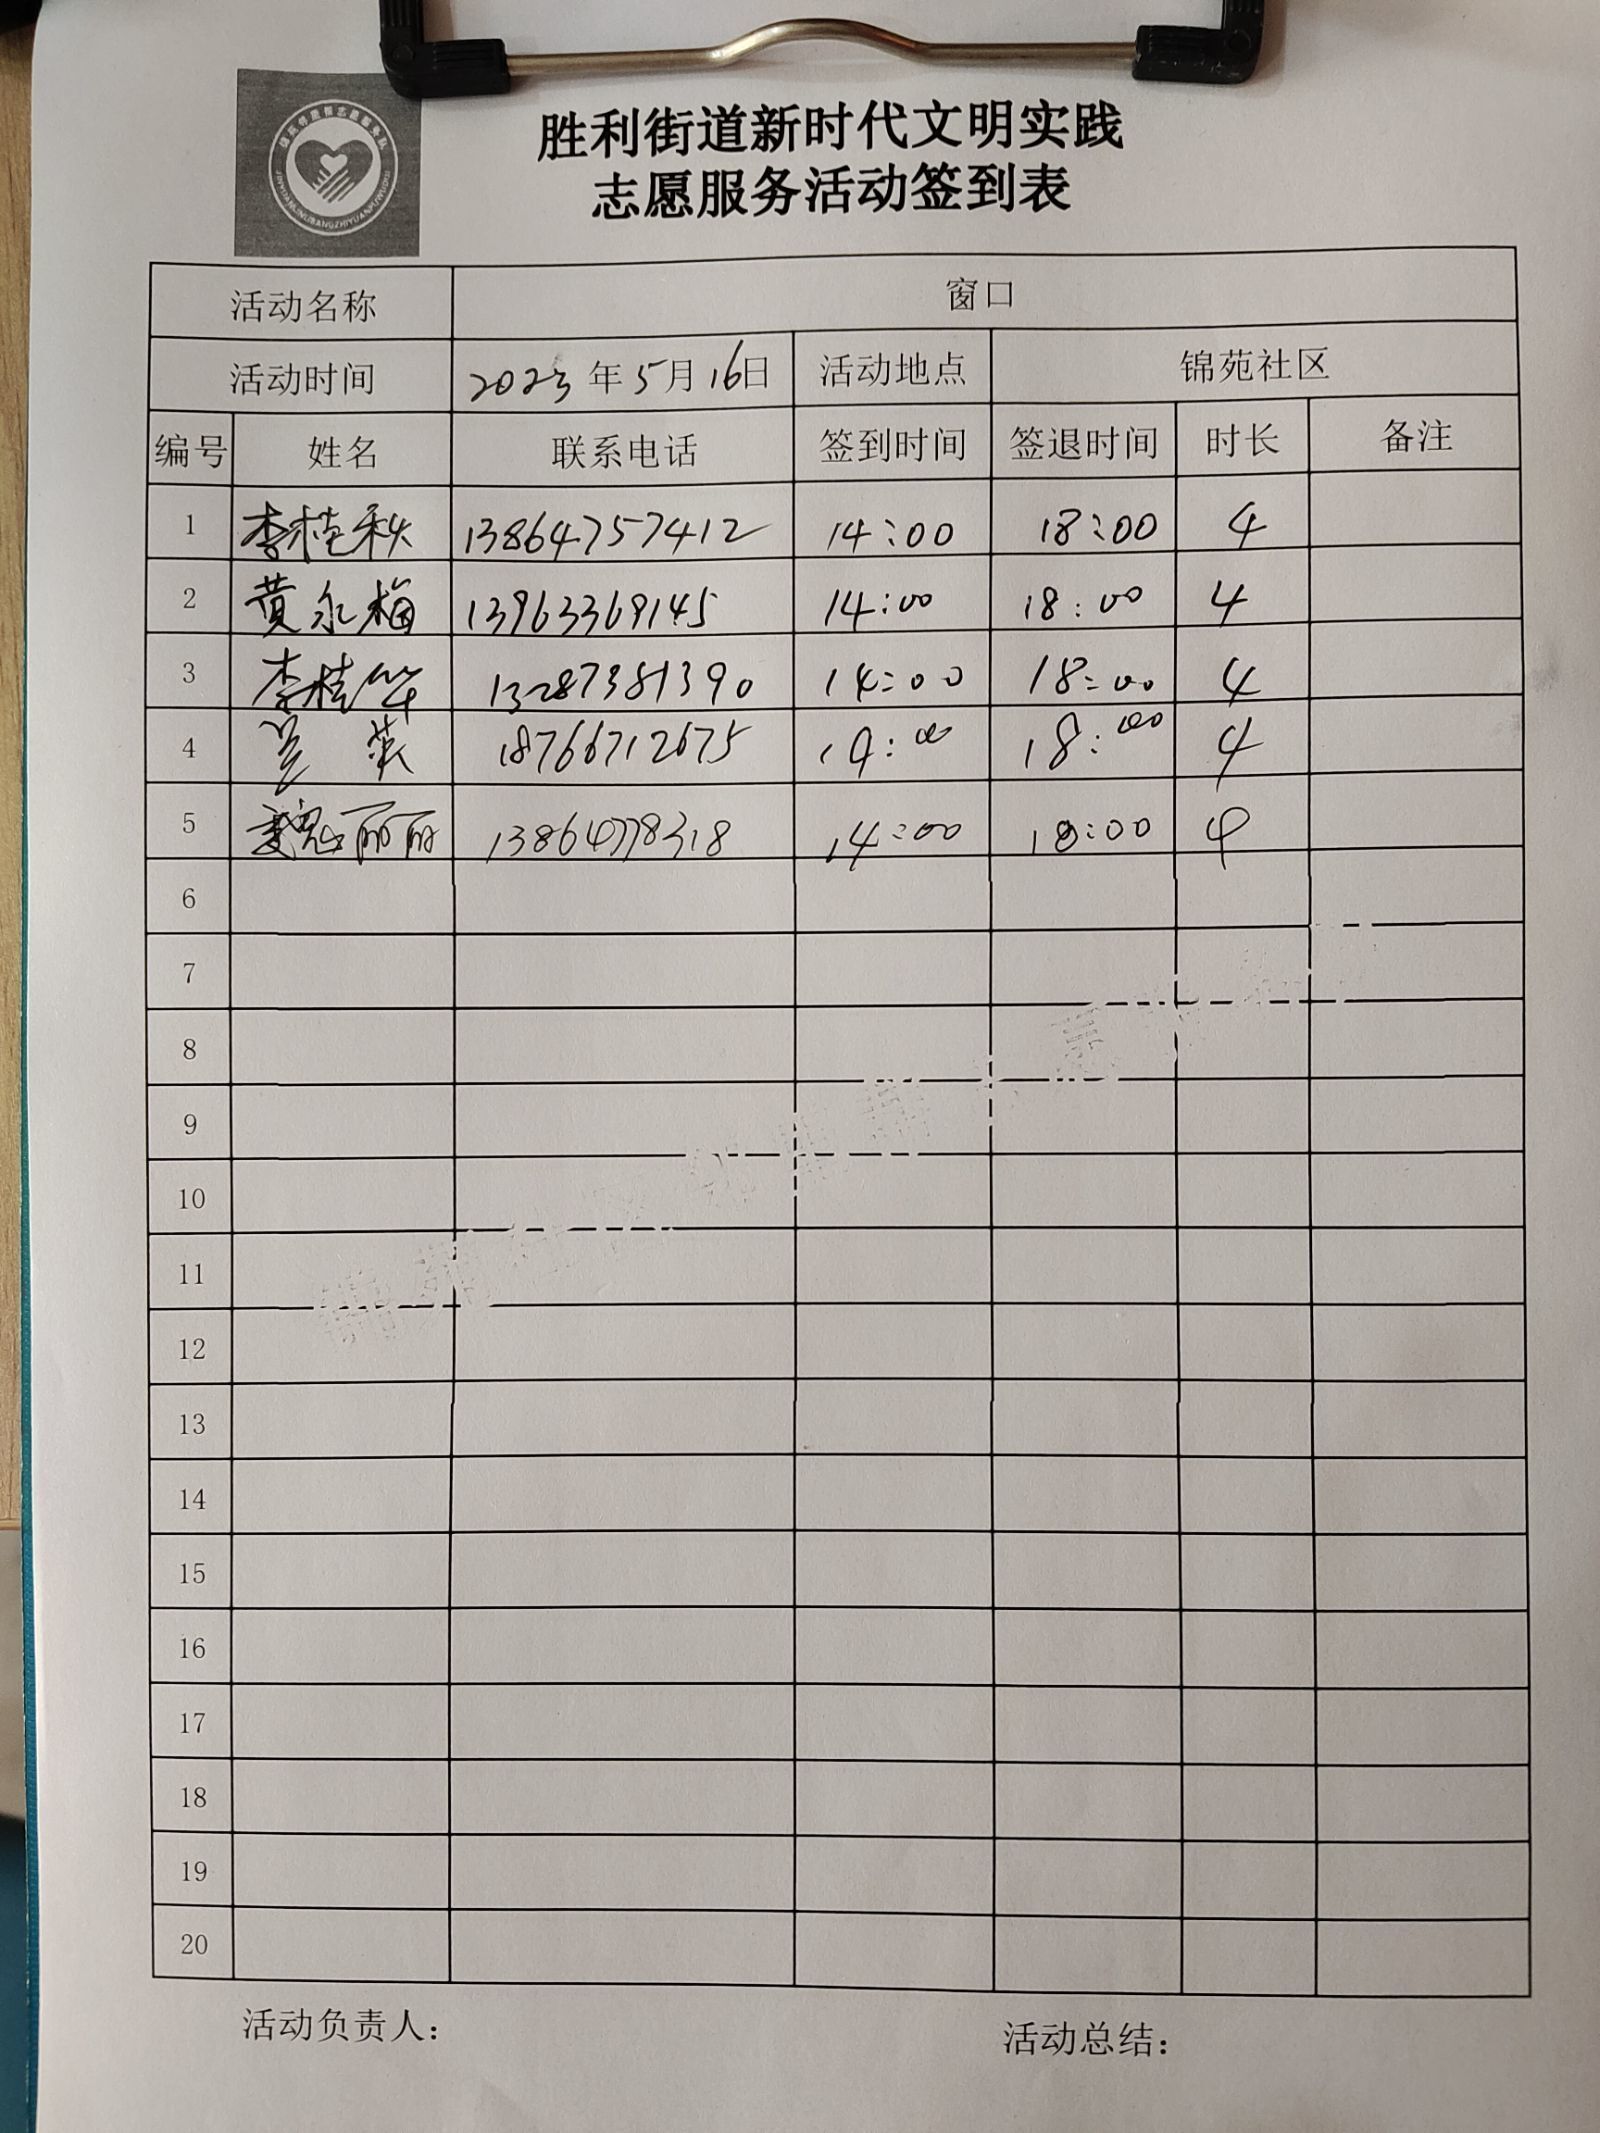 胜利街道新时代文明实践
志愿服务活动签到表
活动名称 窗口
活动时间 2023年5月16日 活动地点 锦苑社区
编号 姓名 联系电话 签到时间 签退时间 时长 备注
1 李桂秋 13864757412 14:00 18:00 4
2 黄永梅 13963369145 14:00 18:00 4
3 李桂华 13287381390 14:00 18:00 4
4 兰英 18766712675 14:00 18:00 4
5 魏丽丽 13864778318 14:00 18:00 4
6
7
8
9
10
11
12
13
14
15
16
17
18
19
20
活动负责人： 活动总结：